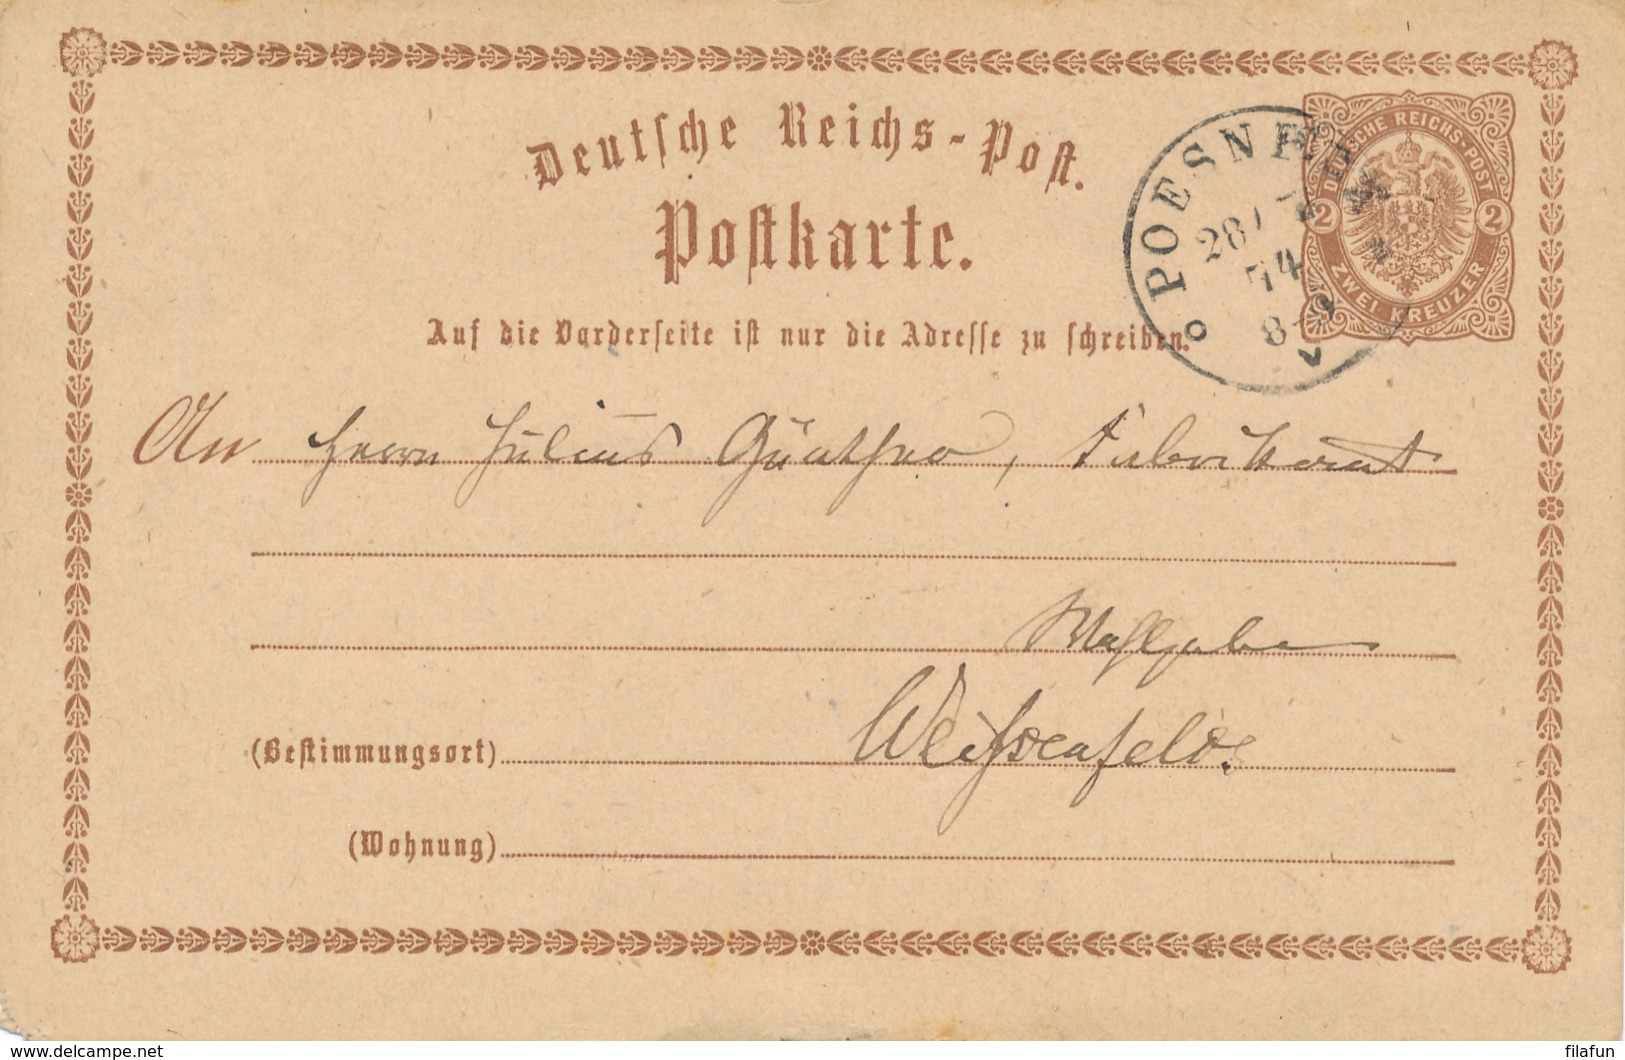 Deutsche Reichs-Post.
Postkarte.
DEUTSCHE REICHS-POST
2 2
ZWEI KREUZER
POESNECK
28/7
74
8-9
V
Auf die Vorderseite ist nur die Adresse zu schreiben.
An Herrn Julius Günther, Fabrikant
Weißenfels.
(Bestimmungsort)
(Wohnung)
delcampe.net
filafun